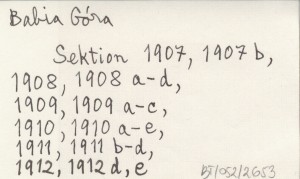 Babia Góra
Sektion 1907, 1907 b,
1908, 1908 a-d,
1909, 1909 a-c,
1910, 1910 a-e,
1911, 1911 b-d,
1912, 1912 d, e
BT/052/2653